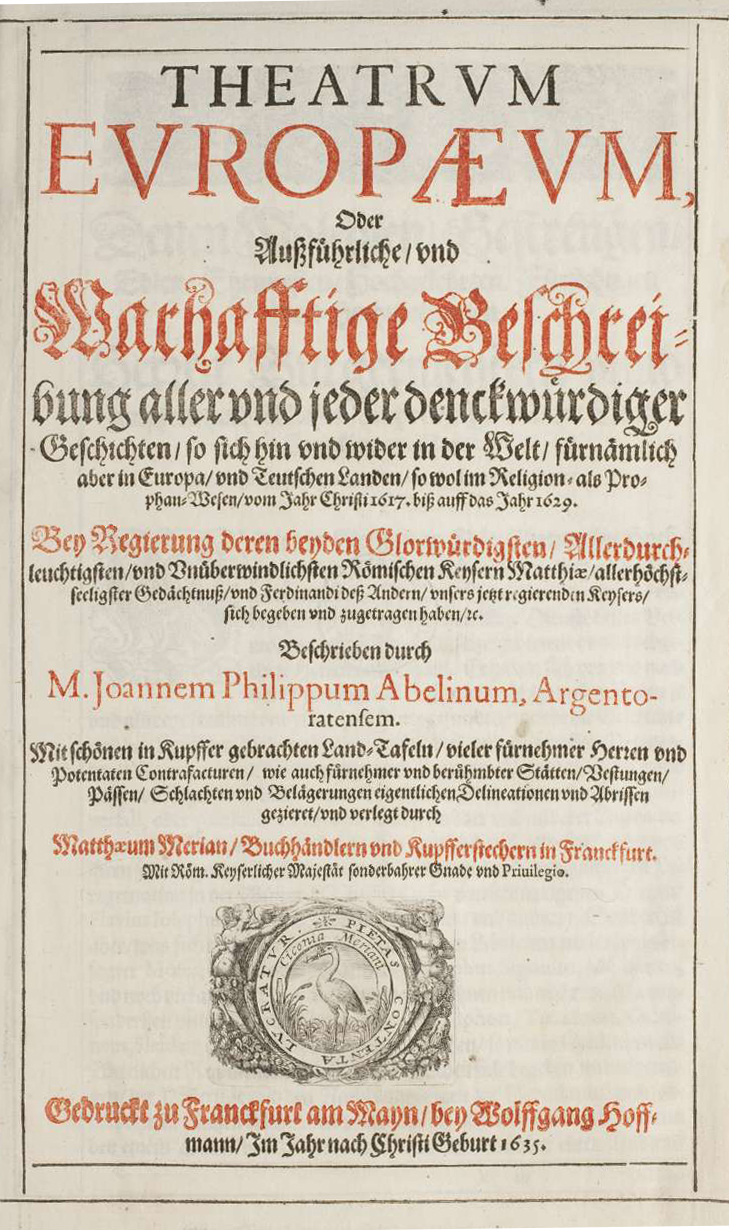 THEATRVM
EVROPÆVM,
Oder
Außführliche / vnd
Warhafftige Beschrei-
bung aller vnd jeder denckwürdiger
Geschichten / so sich hin vnd wider in der Welt / fürnämlich
aber in Europa / vnd Teutschen Landen / so wol im Religion- als Pro-
phan-Wesen / vom Jahr Christi 1617. biß auff das Jahr 1629.
Bey Regierung deren beyden Glorwürdigsten / Allerdurch-
leuchtigsten / vnd Vnüberwindlichsten Römischen Keysern Matthiæ / allerhöchst-
seeligster Gedächtnuß / vnd Ferdinandi deß Andern / vnsers jetzt regierenden Keysers /
sich begeben vnd zugetragen haben / ꝛc.
Beschrieben durch
M. Joannem Philippum Abelinum, Argento-
ratensem.
Mit schönen in Kupffer gebrachten Land-Tafeln / vieler fürnehmer Herren vnd
Potentaten Contrafacturen / wie auch fürnehmer vnd berühmbter Stätten / Vestungen /
Pässen / Schlachten vnd Belägerungen eigentlichen Delineationen vnd Abrissen
gezieret / vnd verlegt durch
Matthæum Merian / Buchhändlern vnd Kupfferstechern in Franckfurt.
Mit Röm. Keyserlicher Majestät sonderbahrer Gnade vnd Priuilegio.
PIETAS CONTENTA LVCRATVR.
Ciconia Meriani
Gedruckt zu Franckfurt am Mayn / bey Wolffgang Hoff-
mann / Im Jahr nach Christi Geburt 1635.